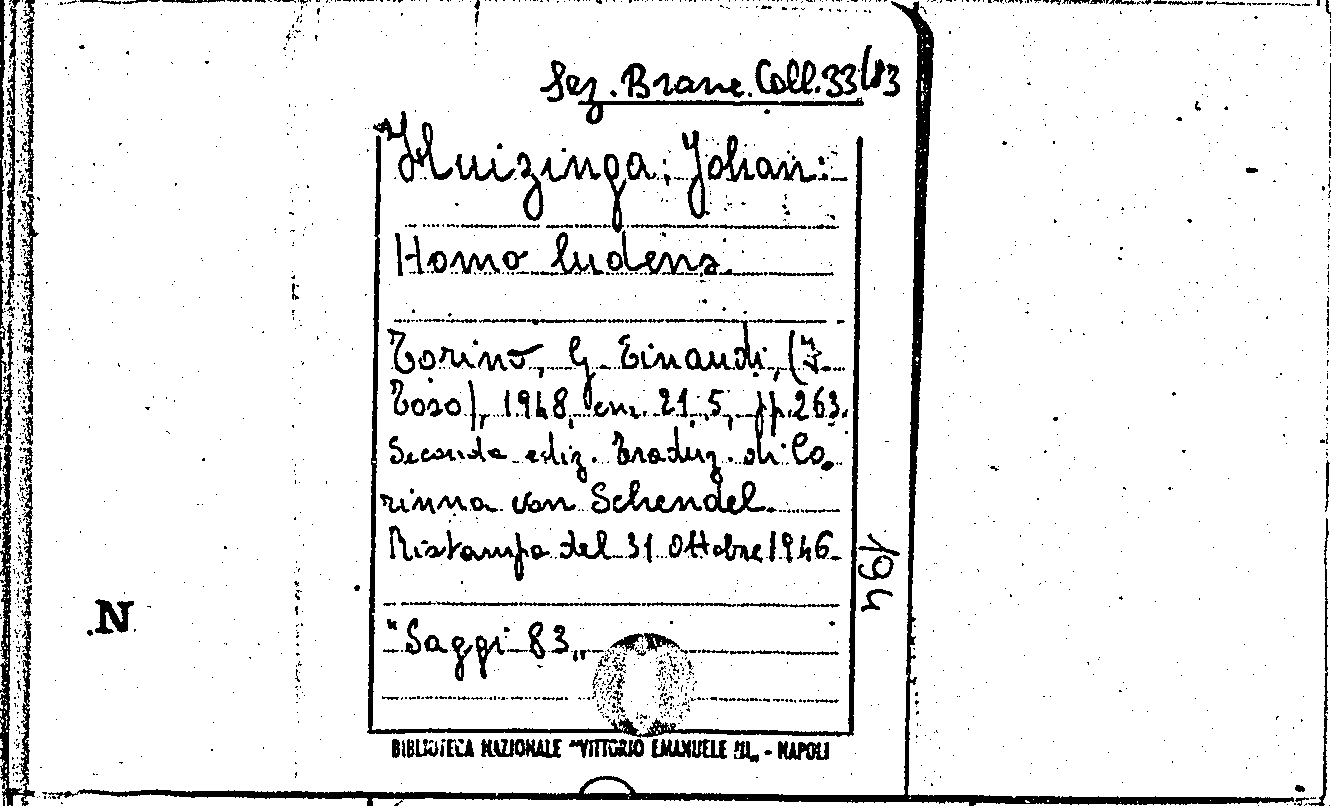 Sez. Branc. Coll. 33/83
Huizinga, Johan:
Homo ludens.
Torino, G. Einaudi, (F.
Toso), 1948, cm. 21,5, pp. 263.
Seconda ediz. Traduz. di Co
rinna von Schendel.
Ristampa del 31 Ottobre 1946.
194
N
"Saggi 83„
BIBLIOTECA NAZIONALE "VITTORIO EMANUELE III„ - NAPOLI